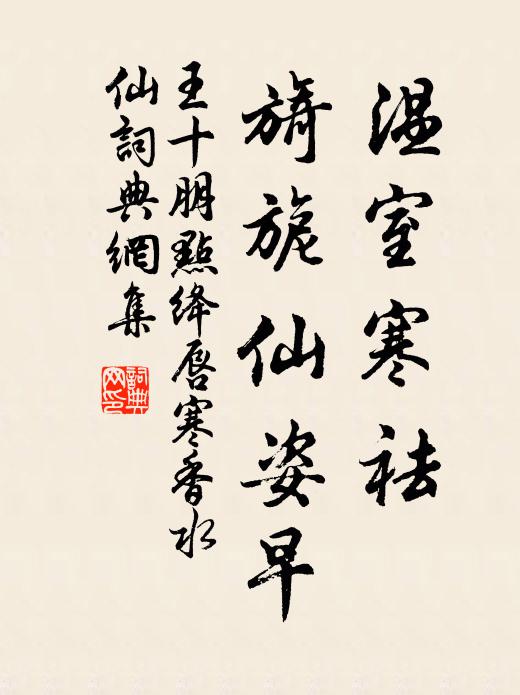 温室寒祛
旖旎仙姿早
王十朋點絳唇寒香水
仙詞典網集
詞典
网印